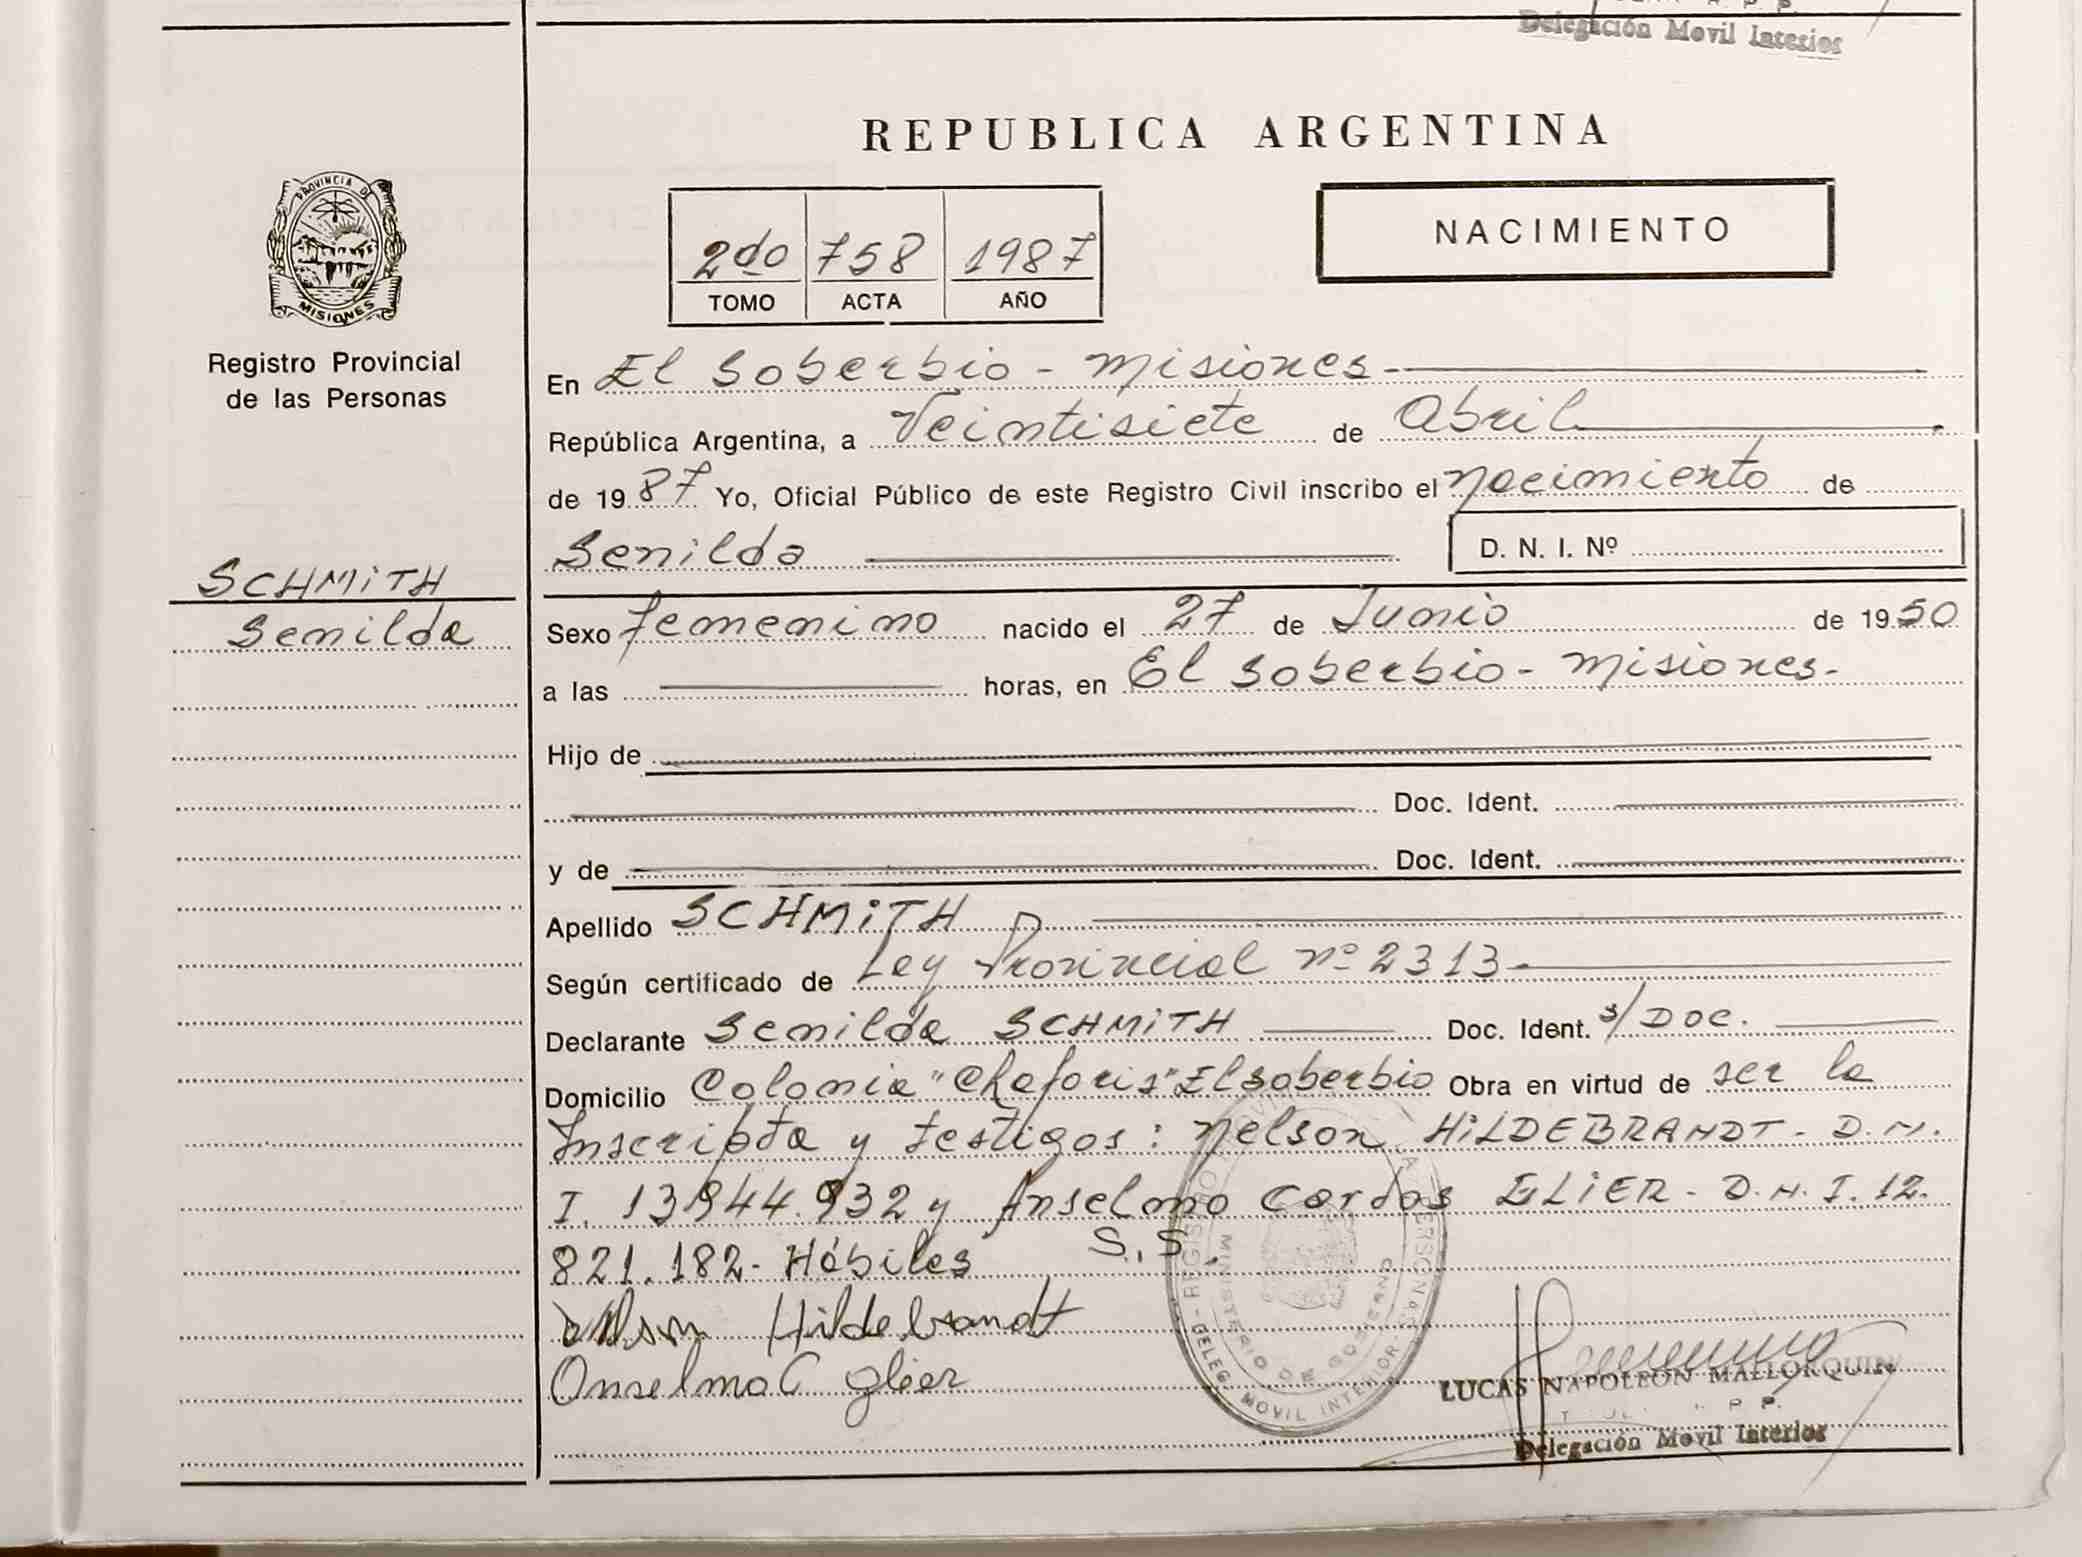 Delegación Movil Interios
REPUBLICA ARGENTINA
PROVINCIA DE
MISIONES
Registro Provincial
de las Personas
2do 758 1987
TOMO ACTA AÑO
NACIMIENTO
En El Soberbio - Misiones
República Argentina, a Veintisiete de Abril
de 1987 Yo, Oficial Público de este Registro Civil inscribo el Nacimiento de
Senilda D. N. I. Nº
SCHMiTH
Senilda
Sexo Femenino nacido el 27 de Junio de 1950
a las horas, en El Soberbio - Misiones.
Hijo de
Doc. Ident.
y de Doc. Ident.
Apellido SCHMiTH
Según certificado de Ley Provincial Nº 2313
Declarante Senilda SCHMiTH Doc. Ident. s/Doc.
Domicilio Colonia "Chafaris" El Soberbio Obra en virtud de ser la
Inscripta y testigos: Nelson HiLDEBRANDT - D.N.
I. 13944.932 y Anselmo Cardos GLiER - D.N.I. 12.
821.182- Hábiles S.S.
Hildebrandt
Anselmo C glier
REGISTRO PROVINCIAL DE LAS PERSONAS
MINISTERIO DE GOBIERNO
DELEG. MOVIL INTERIOR
LUCAS NAPOLEON MALLORQUIN
Delegación Movil Interios